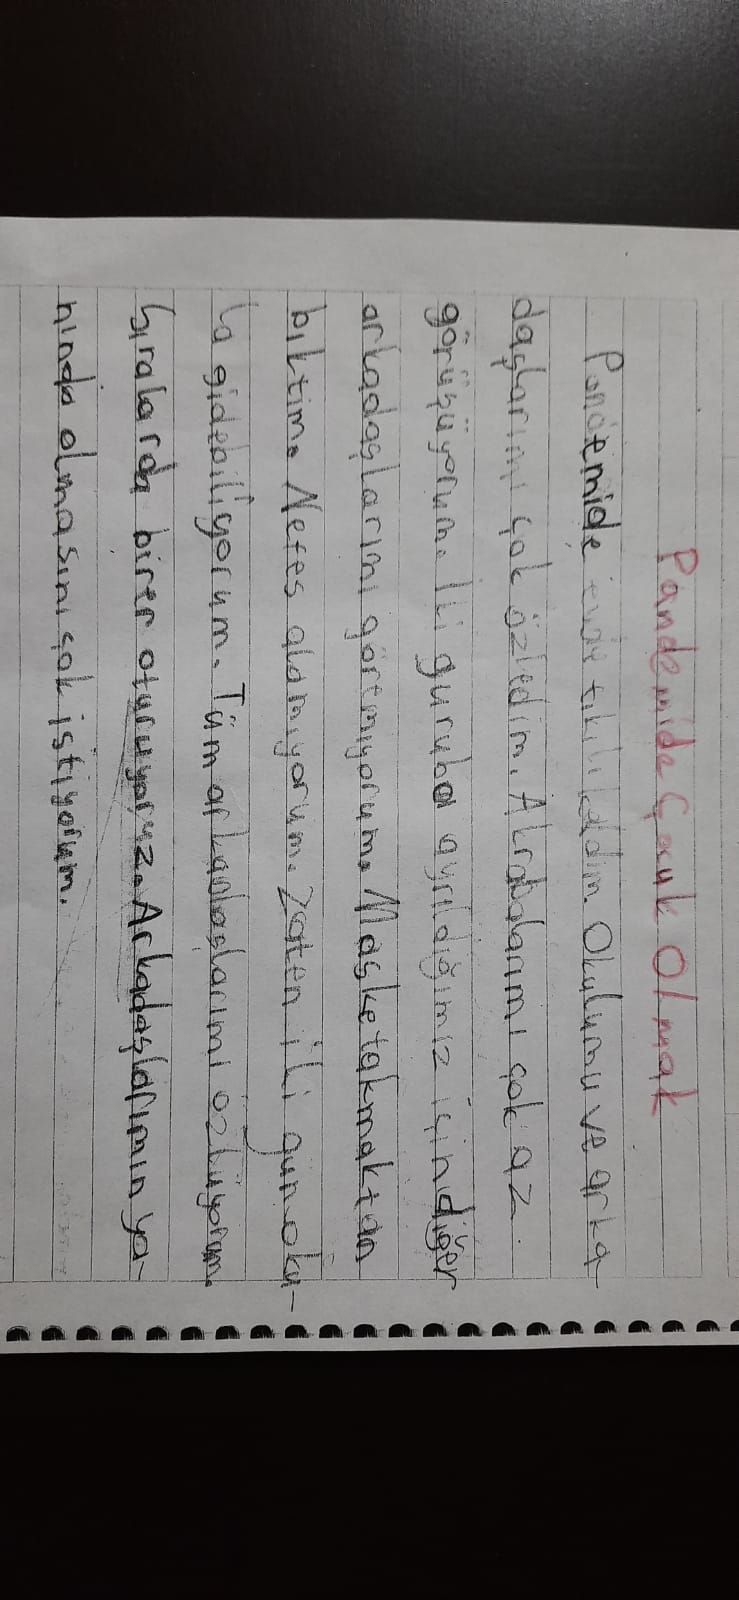 Pandemide Çocuk Olmak
Pandemide evde tıkılı kaldım. Okulumu ve arka-
daşlarımı çok özledim. Akrabalarımı çok az
görüşüyorum. İki guruba ayrıldığımız için diğer
arkadaşlarımı göremiyorum. Maske takmaktan
bıktım. Nefes alamıyorum. Zaten iki gün oku-
la gidebiliyorum. Tüm arkadaşlarımı özlüyorum.
Sıralarda birer oturuyoruz. Arkadaşlarımın ya-
nında olmasını çok istiyorum.